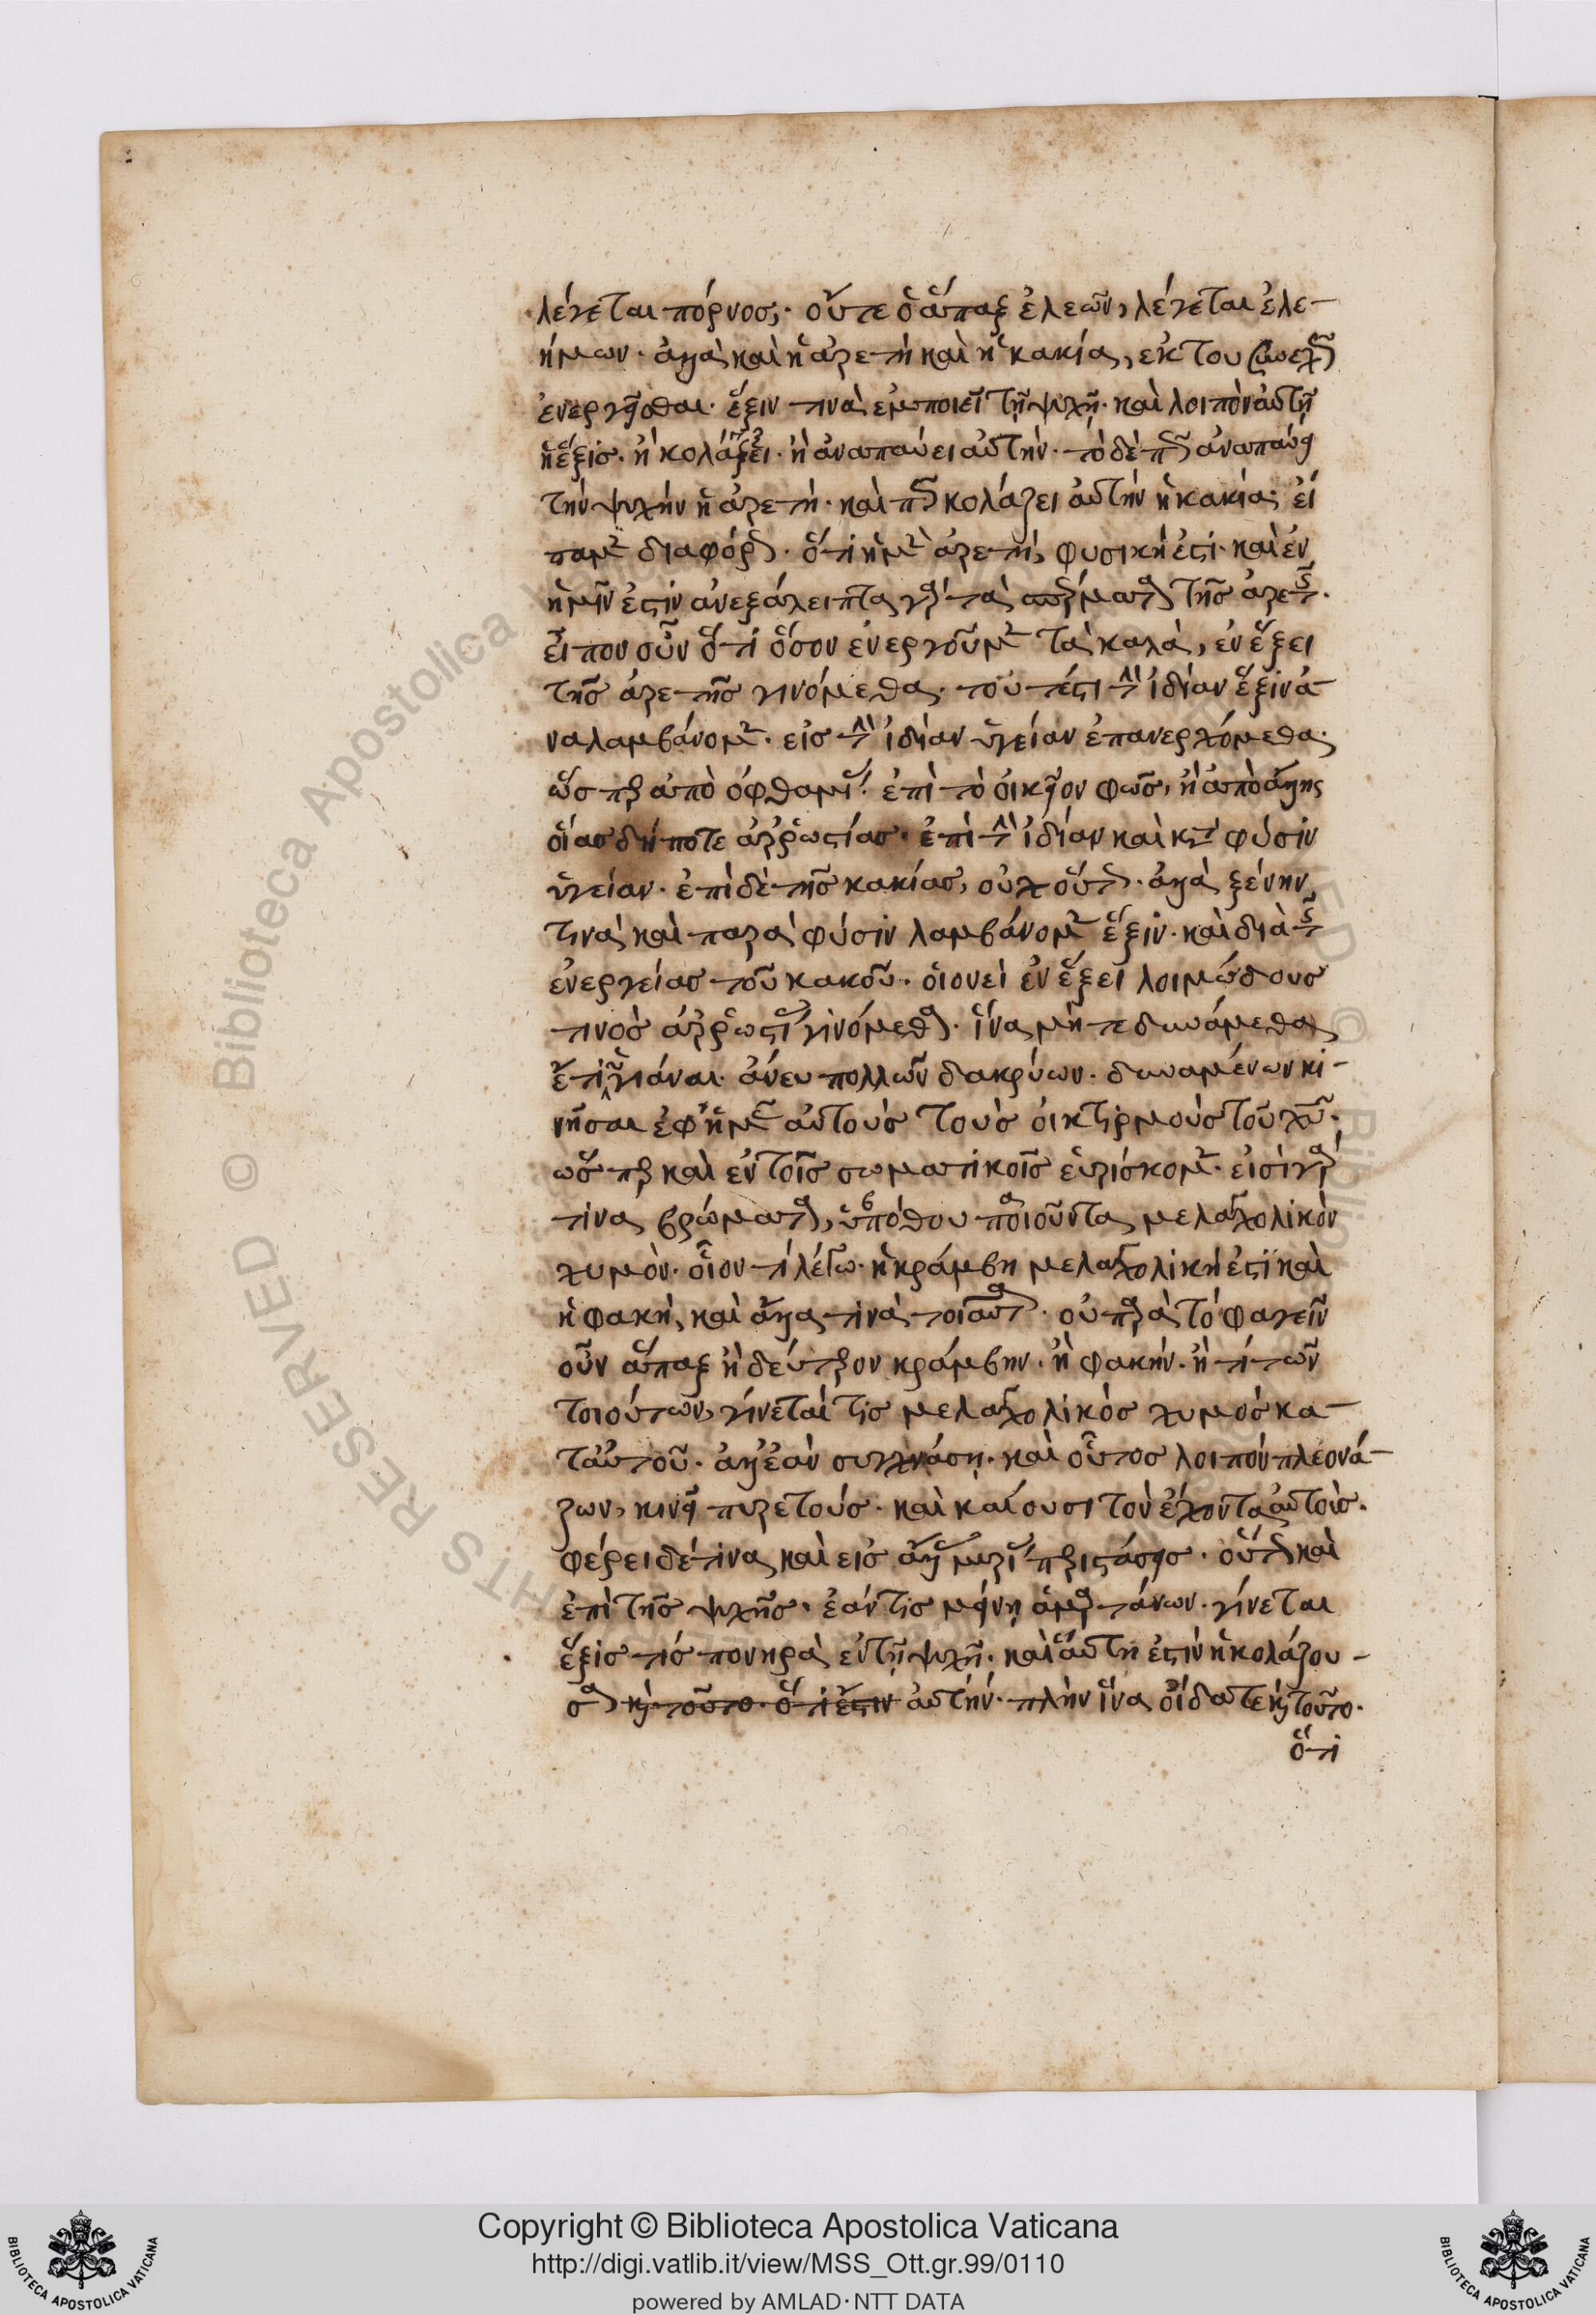 λέγεται πόρνος· οὔτε ὁ ἅπαξ ἐλεῶν, λέγεται ἐλε-
ήμων· ἀλλὰ καὶ ἡ ἀρετὴ καὶ ἡ κακία, ἐκ τοῦ συνεχῶς
ἐνεργεῖσθαι· ἕξιν τινὰ ἐμποιεῖ τῇ ψυχῇ· καὶ λοιπὸν αὐτὴ
ἡ ἕξις· ἢ κολάζει· ἢ ἀναπαύει αὐτήν· τὸ δὲ πῶς ἀναπαύει
τὴν ψυχὴν ἡ ἀρετή· καὶ πῶς κολάζει αὐτὴν ἡ κακία· εἴ
παμεν διαφόρως· ὅτι ἡ μὲν ἀρετή, φυσική ἐστι· καὶ ἐν
ἡμῖν ἐστιν ἀνεξάλειπτα γὰρ τὰ σπέρματα τῆς ἀρετῆς·
εἶπον οὖν ὅτι ὅσον ἐνεργοῦμεν τὰ καλὰ, ἐν ἕξει
τῆς ἀρετῆς γινόμεθα· τουτέστι τὴν ἰδίαν ἕξιν ἀ-
ναλαμβάνομεν· εἰς τὴν ἰδίαν ὑγείαν ἐπανερχόμεθα·
ὥσπερ ἀπὸ ὀφθαλμίας ἐπὶ τὸ οἰκεῖον φῶς, ἢ ἀπὸ ἄλλης
οἵας δήποτε ἀρρωστίας· ἐπὶ τὴν ἰδίαν καὶ κατὰ φύσιν
ὑγείαν· ἐπὶ δὲ τῆς κακίας, οὐχ οὕτως· ἀλλὰ ξένην
τινὰ καὶ παρὰ φύσιν λαμβάνομεν ἕξιν· καὶ διὰ τῆς
ἐνεργείας τοῦ κακοῦ· οἱονεὶ ἐν ἕξει λοιμώδους
τινὸς ἀρρωστίας γινόμεθα· ἵνα μήτε δυνάμεθα
ἔτι ὑγιάναι ἄνευ πολλῶν δακρύων· δυναμένων κι-
νῆσαι ἐφ' ἡμᾶς αὐτοὺς τοὺς οἰκτιρμοὺς τοῦ χυ·
ὥσπερ καὶ ἐν τοῖς σωματικοῖς εὑρίσκομεν· εἰσὶ γάρ
τινα βρώματα, ποιοῦντα μελαγχολικὸν
χυμόν· οἷον τί λέγω· ἡ κράμβη μελαγχολική ἐστι καὶ
ἡ φακή, καὶ ἄλλα τινὰ τοιαῦτα· οὐ παρὰ τὸ φαγεῖν
οὖν ἅπαξ ἢ δεύτερον κράμβην· ἢ φακήν· ἤ τι τῶν
τοιούτων, γίνεταί τις μελαγχολικὸς χυμὸς κα-
τ' αὐτοῦ· ἀλλ' ἐὰν συχνάσῃ· καὶ οὗτος λοιπὸν πλεονά-
ζων, κινεῖ πυρετούς· καὶ καίουσι τὸν ἔχοντα αὐτοὺς·
φέρει δέ τινα καὶ εἰς ἄλλας μυρίας περιστάσεις· οὕτως καὶ
ἐπὶ τῆς ψυχῆς· ἐάν τις μείνῃ ἁμαρτάνων· γίνεται
ἕξις τις πονηρὰ ἐν τῇ ψυχῇ· καὶ αὕτη ἐστὶν ἡ κολάζου-
σα καὶ τοῦτο· ὅτι ἔστιν αὐτήν· πλὴν ἵνα οἴδατε καὶ τοῦτο·
ὅτι
Copyright © Biblioteca Apostolica Vaticana
http://digi.vatlib.it/view/MSS_Ott.gr.99/0110
powered by AMLAD·NTT DATA